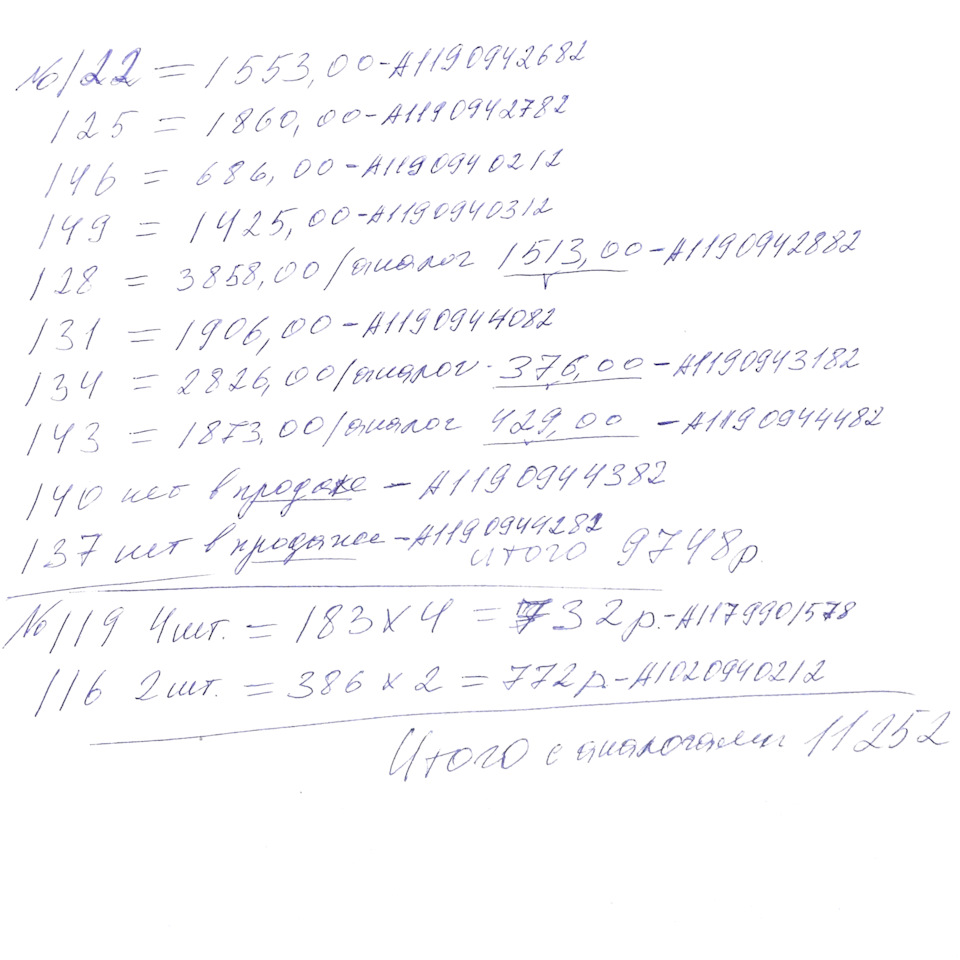 №122 = 1553,00-A1190942682
125 = 1860,00-A1190942782
146 = 686,00-A1190940212
149 = 1425,00-A1190940312
128 = 3858,00/аналог 1513,00-A1190942882
131 = 1906,00-A1190944082
134 = 2826,00/аналог 376,00-A1190943182
143 = 1873,00/аналог 429,00-A1190944482
140 нет в продаже-A1190944382
137 нет в продаже-A1190944282
итого 9748р.
№119 4шт. = 183×4 = 732р.-A1179901578
116 2шт. = 386×2 = 772р.-A1020940212
Итого с аналогами 11252